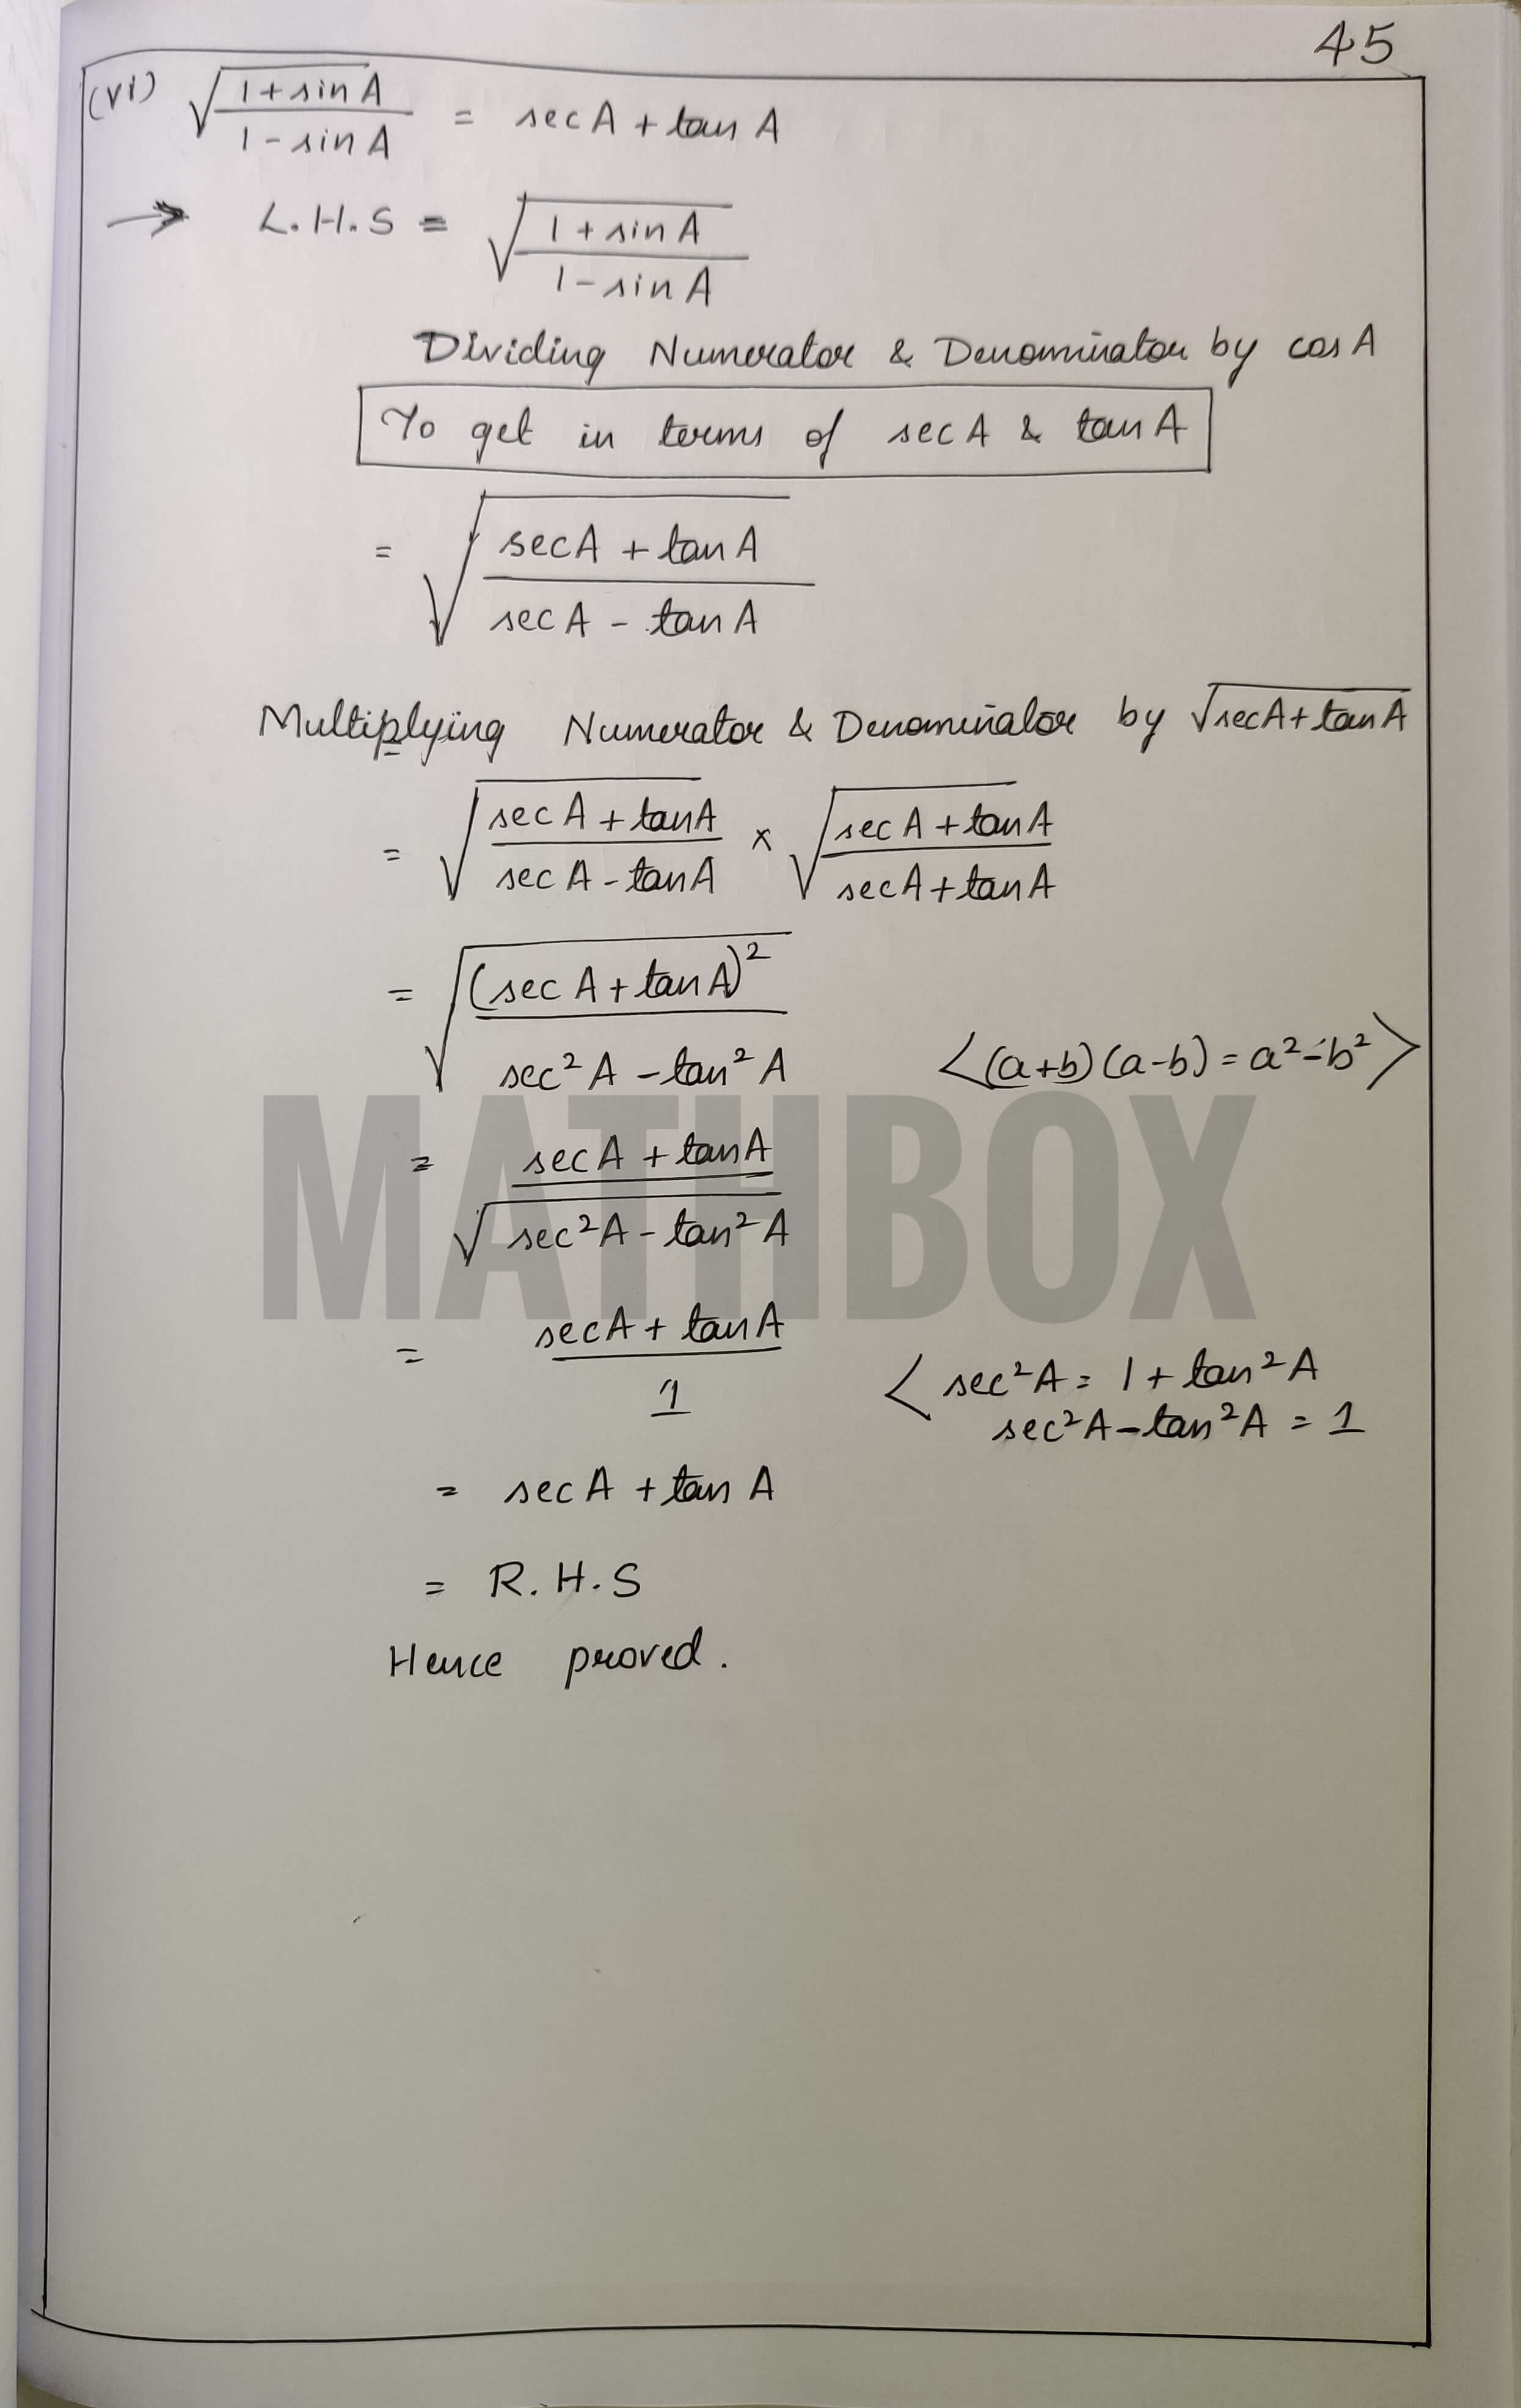 45
(vi) √(1+sinA / 1-sinA) = secA + tanA
→ L.H.S = √(1+sinA / 1-sinA)
Dividing Numerator & Denominator by cosA
To get in terms of secA & tanA
= √(secA + tanA / secA - tanA)
Multiplying Numerator & Denominator by √secA+tanA
= √(secA + tanA / secA - tanA) × √(secA + tanA / secA + tanA)
= √((secA + tanA)² / sec²A - tan²A) <(a+b)(a-b) = a²-b²>
= secA + tanA / √sec²A - tan²A
= secA + tanA / 1 < sec²A = 1 + tan²A
sec²A - tan²A = 1
= secA + tanA
= R.H.S
Hence proved.
MATHBOX